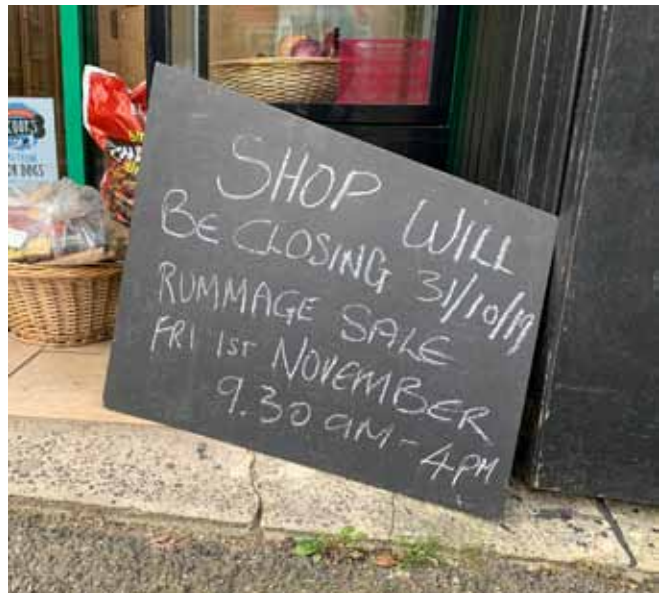 SHOP WILL
BE CLOSING 31/10/19
RUMMAGE SALE
FRI 1ST NOVEMBER
9.30 AM - 4PM